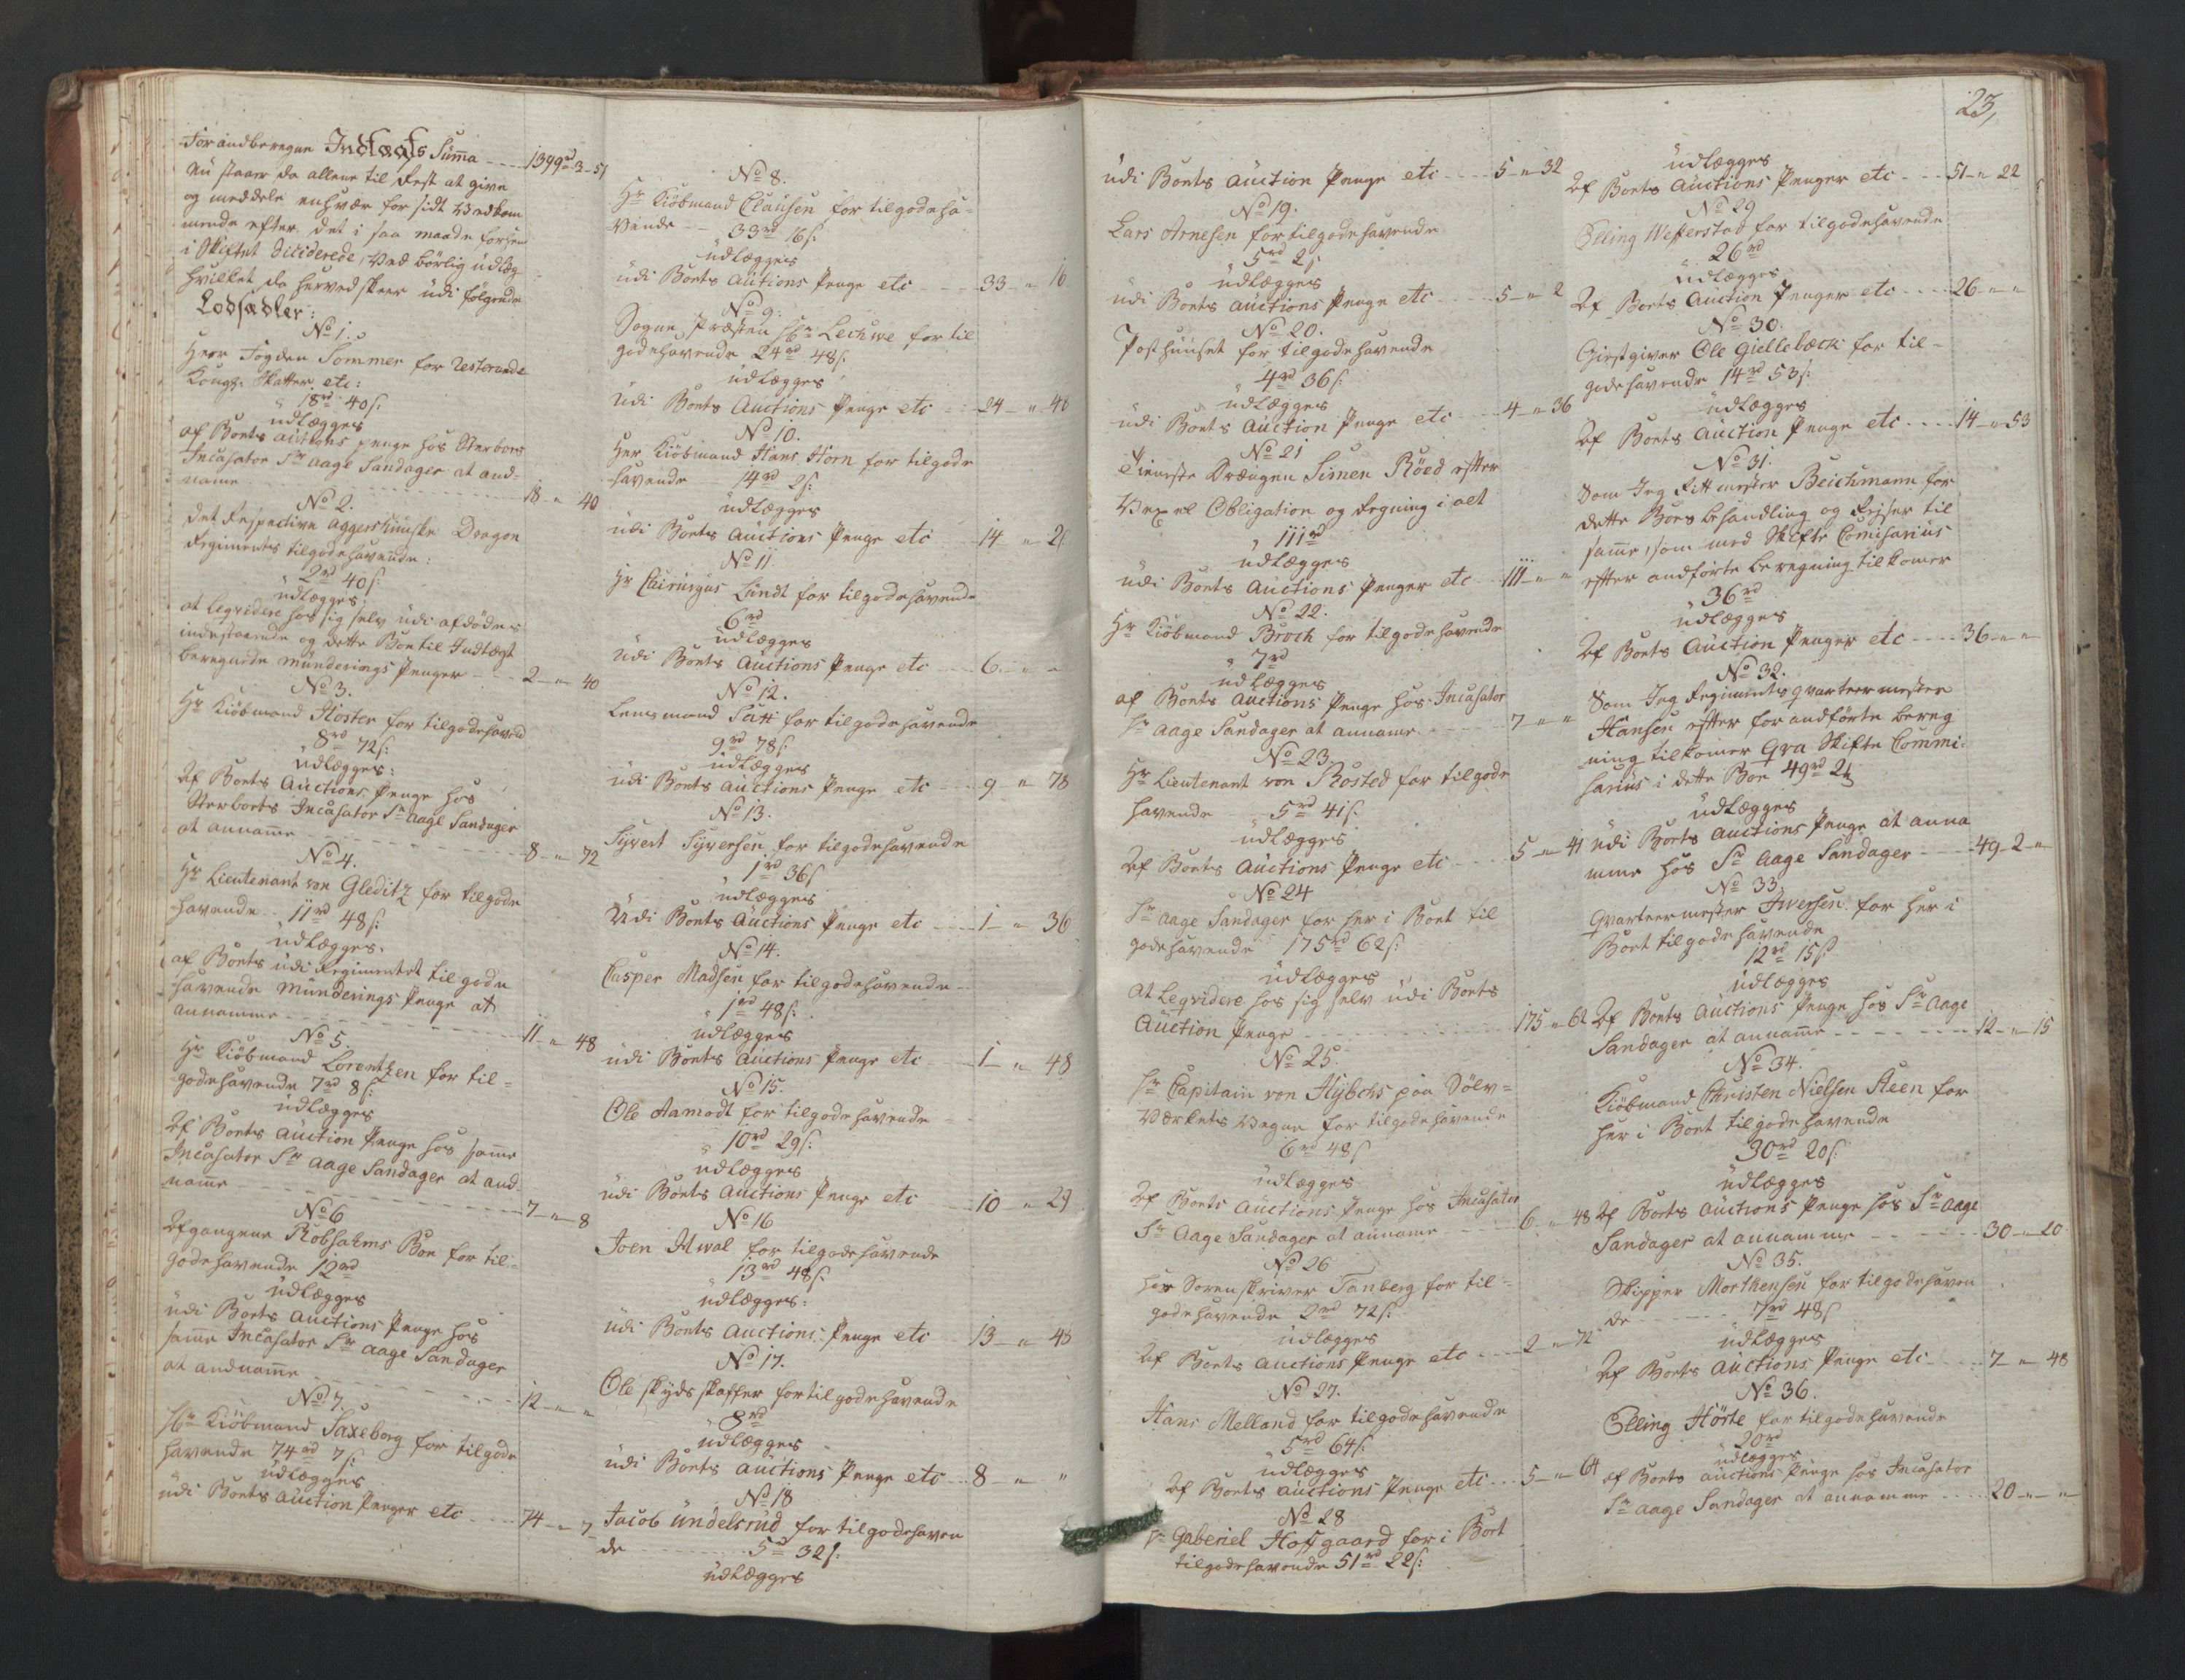 Forandberegne Indtægts Suma ---- 1399rd 3 - 51
nu staar da allene til Rest at give
og meddele enhver for sidt Vedkom
mende efter det i saa maade forhen
i Skiftet Diciderede, Ved børlig udlæg
hvilket da herved skeer udi følgende
Lodsedler:
No 1.
Herr Fogden Sommer for Resterende
Kongl. Skatter etc:
18rd 40 s:
udlægges
af Boets auctions penge hos Sterboets
Incasator Sr Aage Sandager at and-
name ---- 18 - " 40
No 2.
Det Respective Aggershuuske Dragon
Regiments tilgodehavende:
2rd 40 s:
udlægges
at Leqvidere hos sig selv udi afdødes
indestaaende og dette Boe til Indtægt
beregnede Munderings Penger --- 2 - " - 40
No 3.
Hr Kiøbmand Høster for tilgodehavend
8rd 72 s:
udlægges:
Af Boets Auctions Penge hos
Sterboets Incasator Sr Aage Sandager
at anname ---- 8 - " - 72
No 4.
Hr Lieutenant von Gleditz for tilgode
havende 11rd 48 s:
udlægges.
af Boets udi Regimentet tilgode
havende Munderings Penge at
annamme ---- 11 - " - 48
No 5.
Hr Kiøbmand Lorentzen for til-
godehavende 7rd 8 s:
udlægges
Af Boets Auction Penge hos same
Incasator Sr Aage Sandager at and-
name ---- 7 - " - 8
No 6
Afgangene Robsahms Boe for til-
godehavende 12rd
udlægges
udi Boets Auctions Penge hos
same Incasator Sr Aage Sandager
at andname ---- 12 - " - "
No 7.
Hr Kiøbmand Saxeborg for tilgode
havende 74rd 7 s:
udlægges
udi Boets Auction Penger etc ---- 74 - " 7
No 8.
Hr Kiøbmand Clausen for tilgodeha-
vende -- 33rd 16 s:
udlægges
udi Boets Autions Penge etc ---- 33 - " 16
No 9.
Sogne Præsten Hr Lechwe for til
godehavende 24rd 48 s:
udlægges
Udi Boets Auctions Penge etc -- 24 - " 48
No 10.
Her Kiøbmand Hans Horn for tilgode
havende 14rd 2 s:
udlægges
udi Boets Auctions Penge etc -- 14 - " 2
No 11
Hr Chirurgus Lundt for tilgodehavende
6rd
udlægges
Udi Boets Auctions Penge etc --- 6 - " -
No 12.
Lensmand Sætt for tilgodehavende
9rd 78 s:
udlægges
udi Boets Auctions Penge etc --- 9 - " 78
No 13.
Syvert Syversen for tilgodehavende
1rd 36 s
udlægges
Udi Boets Auctions Penge etc ---- 1 - " - 36
No 14.
Casper Madsen for tilgodehavende --
1rd 48 s:
udlægges
udi Boets Auctions Penge etc --- 1 - " - 48
No 15.
Ole Aamodt for tilgodehavende
10rd 29 s:
udlægges
udi Boets Auctions Penge etc ---- 10 - " 29
No 16
Joen Hval for tilgodehavende
13rd 48 s:
udlægges:
Udi Boets Auctions Penge etc --- 13 - " - 48
No 17.
Ole skydsskaffer for tilgodehavende
8rd
udlægges
udi Boets Auctions Penge etc --- 8 - " - "
No 18
Jacob Undelsrud for tilgodehaven
de ---- 5rd 32 s:
udlægges
23,
udi Boets Auction Penge etc --- 5 - " 32
No 19.
Lars Arnesen for tilgodehavende
5rd 2 s
udlægges
udi Boets Auctions Penge etc --- 5 - " 2
No 20.
Posthuuset for tilgodehavende
4rd 36 s:
udlægges
udi Boets Auction Penge etc --- 4 - " 36
No 21
Tieneste Drængen Simen Røed efter
Vexel Obligation og Regning i alt
111rd
udlægges
udi Boets Auctions Penger etc --- 111 - " - "
No 22.
Hr Kiøbmand Broch for tilgodehavende
7rd
udlægges
af Boets Auctions Penge hos Incasator
Sr Aage Sandager at anname ---- 7 - " - "
No 23
Hr Lieutenant von Rosted for tilgode
havende -- 5rd 41 s:
udlægges
Af Boets Auctions Penge etc ---- 5 - " - 41
No 24
Sr Aage Sandager for her i Boet til
godehavende 175rd 62 s:
udlægges
at Leqvidere hos sig selv udi Boets
Auction Penge ---- 175 - " 62
No 25.
Hr Capitain von Hybchs paa Sølv-
Værkets Vegne for tilgodehavende
6rd 48 s
udlægges
Af Boets Auctions Penge hos Incasator
Sr Aage Sandager at anname ---- 6 - " 48
No 26
Her Sorenskriver Tanberg for til-
godehavende 2rd 72 s:
udlægges
Af Boets Auctions Penge etc ---- 2 - " 72
No 27.
Hans Melland for tilgodehavende
5rd 64 s:
udlægges
Af Boets Auctions Penge etc --- 5 - " 64
No 28
Sr Gaberiel Hofgaard for i Boet
tilgodehavende 51rd 22 s:
udlægges
Af Boets Auctions Penger etc ---- 51 - " 22
No 29
Elling Wefferstad for tilgodehavende
26rd
udlægges
Af Boets Auction Penger etc ---- 26 - " - "
No 30.
Giestgiver Ole Giellebæck for til-
godehavende 14rd 53 s:
udlægges
Af Boets Auction Penge etc ---- 14 - " 53
No 31.
Som Jeg Rittmester Beichmann for
dette Boes behandling og Reiser til
samme, som med Skifte Comisarius
efter andførte beregning tilkomer
36rd
udlægges
Af Boets Auction Penger etc ---- 36 - " - "
No 32.
Som Jeg Regiments qvarteermester
Hansen efter forandførte bereg
ning tilkomer Qva Skifte Commi-
sarius i dette Boe 49rd 2
udlægges
Udi Boets Auctions Penge at anna
mme hos Sr Aage Sandager ---- 49 - 2 - "
No 33
Qvarteermester Iwersen for her i
Boet tilgodehavende
12rd 15 s
udlægges
Af Boets Auctions Penge hos Sr Aage
Sandager at anname ---- 12 - " - 15
No 34.
Kiøbmand Christen Nielsen Steen for
her i Boet tilgodehavende
30rd 20 s:
udlægges
Af Boets Auctions Penge hos Sr Aage
Sandager at annamme ---- 30 - " 20
No 35.
Skipper Morthensen for tilgodehaven
de ---- 7rd 48 s
udlægges
Af Boets Auctions Penge etc ---- 7 - " - 48
No 36.
Elling Hørte for tilgodehavende
20rd
udlægges
af Boets Auctions Penge hos Incasator
Sr Aage Sandager at annamme ---- 20 - " - "